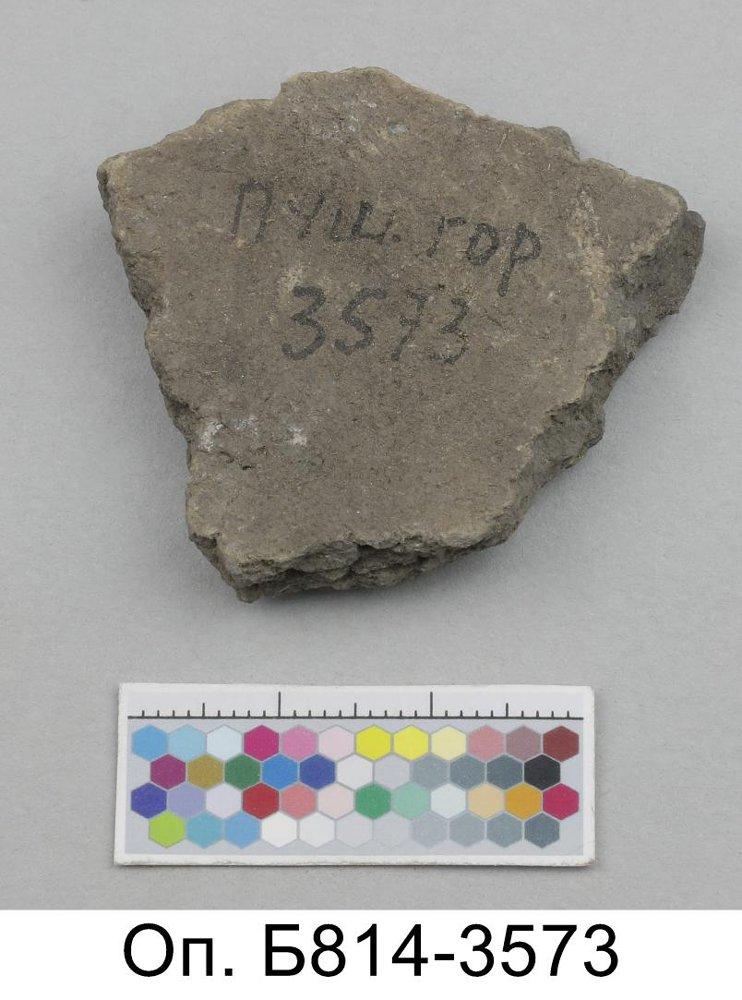 ПУЩ. ГОР
3573
Оп. Б814-3573